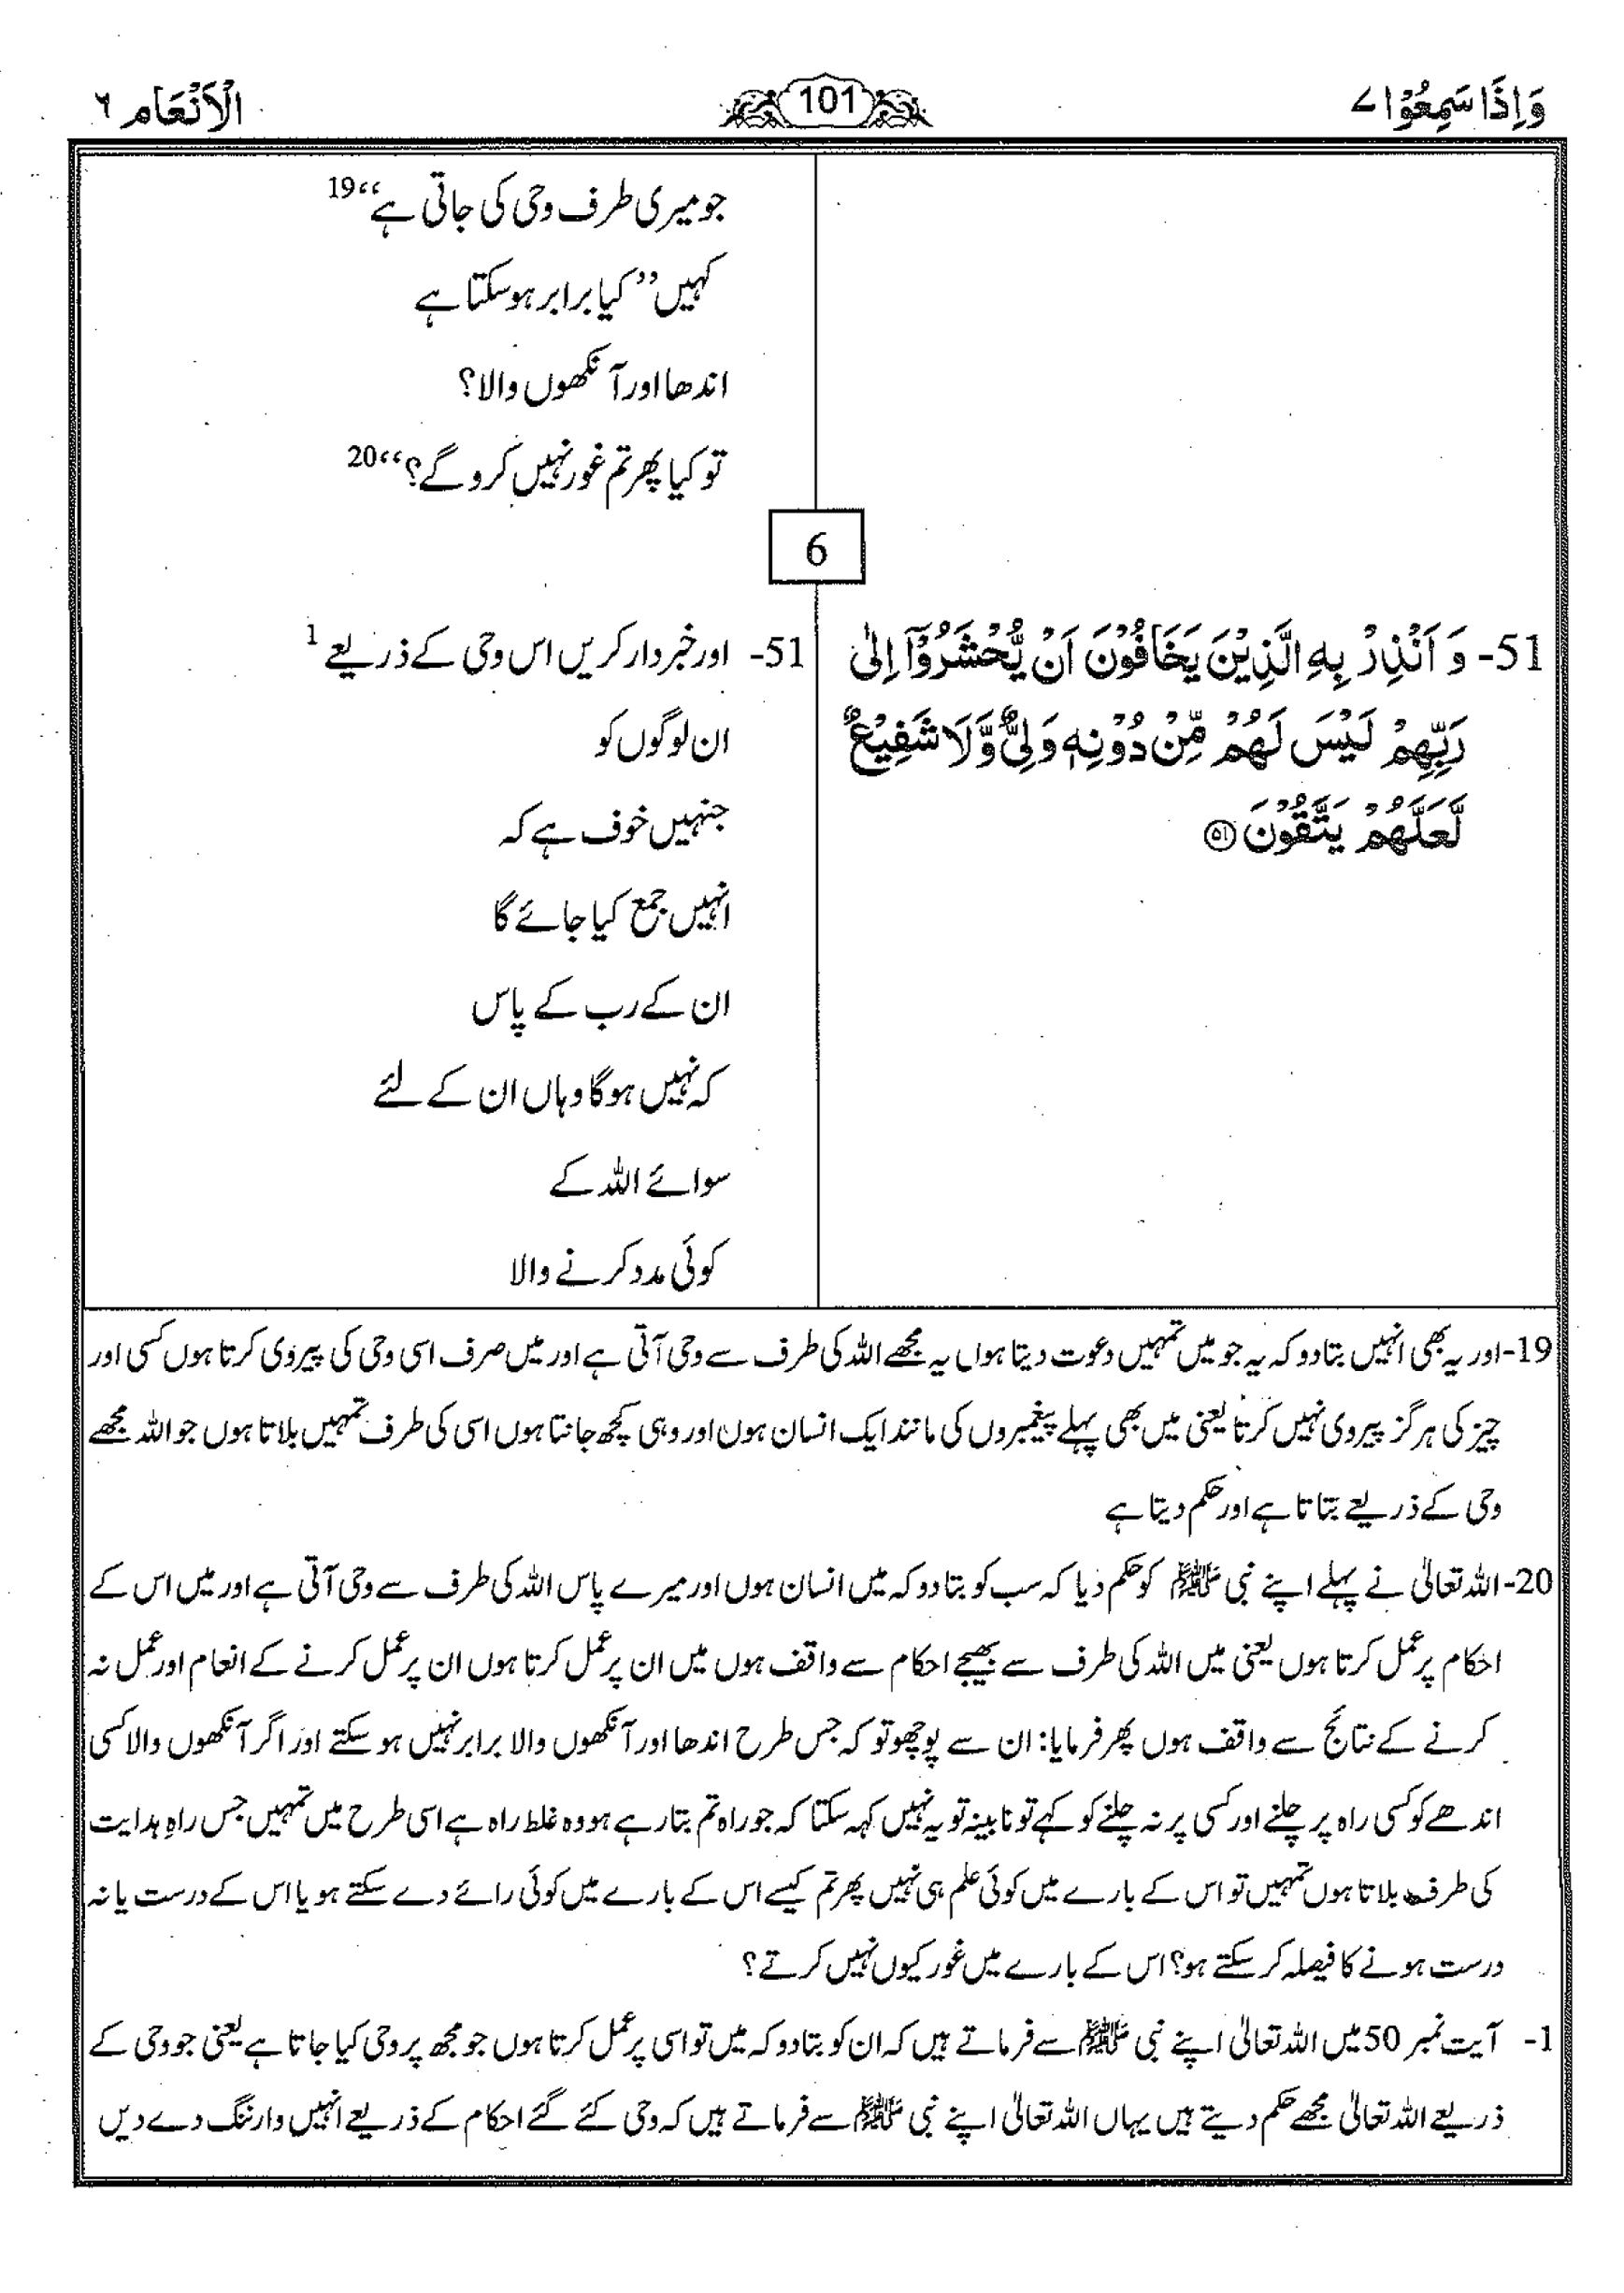 وَاِذَا سَمِعُوْا ٧
101
الْاَنْعَام ٦
جو میری طرف وحی کی جاتی ہے‘‘ 19
کہیں ’’کیا برابر ہو سکتا ہے
اندھا اور آنکھوں والا؟
تو کیا پھر تم غور نہیں کرو گے؟‘‘ 20
6
51- وَ اَنْذِرْ بِهِ الَّذِيْنَ يَخَافُوْنَ اَنْ يُّحْشَرُوْۤا اِلٰى
رَبِّهِمْ لَيْسَ لَهُمْ مِّنْ دُوْنِهٖ وَلِيٌّ وَّلَا شَفِيْعٌ
لَّعَلَّهُمْ يَتَّقُوْنَ ۝٥١
51- اور خبردار کریں اس وحی کے ذریعے 1
ان لوگوں کو
جنہیں خوف ہے کہ
انہیں جمع کیا جائے گا
ان کے رب کے پاس
کہ نہیں ہوگا وہاں ان کے لئے
سوائے اللہ کے
کوئی مدد کرنے والا
19- اور یہ بھی انہیں بتا دو کہ یہ جو میں تمہیں دعوت دیتا ہوں یہ مجھے اللہ کی طرف سے وحی آتی ہے اور میں صرف اسی وحی کی پیروی کرتا ہوں کسی اور
چیز کی ہرگز پیروی نہیں کرتا یعنی میں بھی پہلے پیغمبروں کی مانند ایک انسان ہوں اور وہی کچھ جانتا ہوں اسی کی طرف تمہیں بلاتا ہوں جو اللہ مجھے
وحی کے ذریعے بتاتا ہے اور حکم دیتا ہے
20- اللہ تعالیٰ نے پہلے اپنے نبی ﷺ کو حکم دیا کہ سب کو بتا دو کہ میں انسان ہوں اور میرے پاس اللہ کی طرف سے وحی آتی ہے اور میں اس کے
احکام پر عمل کرتا ہوں یعنی میں اللہ کی طرف سے بھیجے احکام سے واقف ہوں میں ان پر عمل کرتا ہوں ان پر عمل کرنے کے انعام اور عمل نہ
کرنے کے نتائج سے واقف ہوں پھر فرمایا: ان سے پوچھو تو کہ جس طرح اندھا اور آنکھوں والا برابر نہیں ہو سکتے اور اگر آنکھوں والا کسی
اندھے کو کسی راہ پر چلنے اور کسی پر نہ چلنے کو کہے تو نابینہ تو یہ نہیں کہہ سکتا کہ جو راہ تم بتا رہے ہو وہ غلط راہ ہے اسی طرح میں تمہیں جس راہِ ہدایت
کی طرف بلاتا ہوں تمہیں تو اس کے بارے میں کوئی علم ہی نہیں پھر تم کیسے اس کے بارے میں کوئی رائے دے سکتے ہو یا اس کے درست یا نہ
درست ہونے کا فیصلہ کر سکتے ہو؟ اس کے بارے میں غور کیوں نہیں کرتے؟
1- آیت نمبر 50 میں اللہ تعالیٰ اپنے نبی ﷺ سے فرماتے ہیں کہ ان کو بتا دو کہ میں تو اسی پر عمل کرتا ہوں جو مجھ پر وحی کیا جاتا ہے یعنی جو وحی کے
ذریعے اللہ تعالیٰ مجھے حکم دیتے ہیں یہاں اللہ تعالیٰ اپنے نبی ﷺ سے فرماتے ہیں کہ وحی کئے گئے احکام کے ذریعے انہیں وارننگ دے دیں